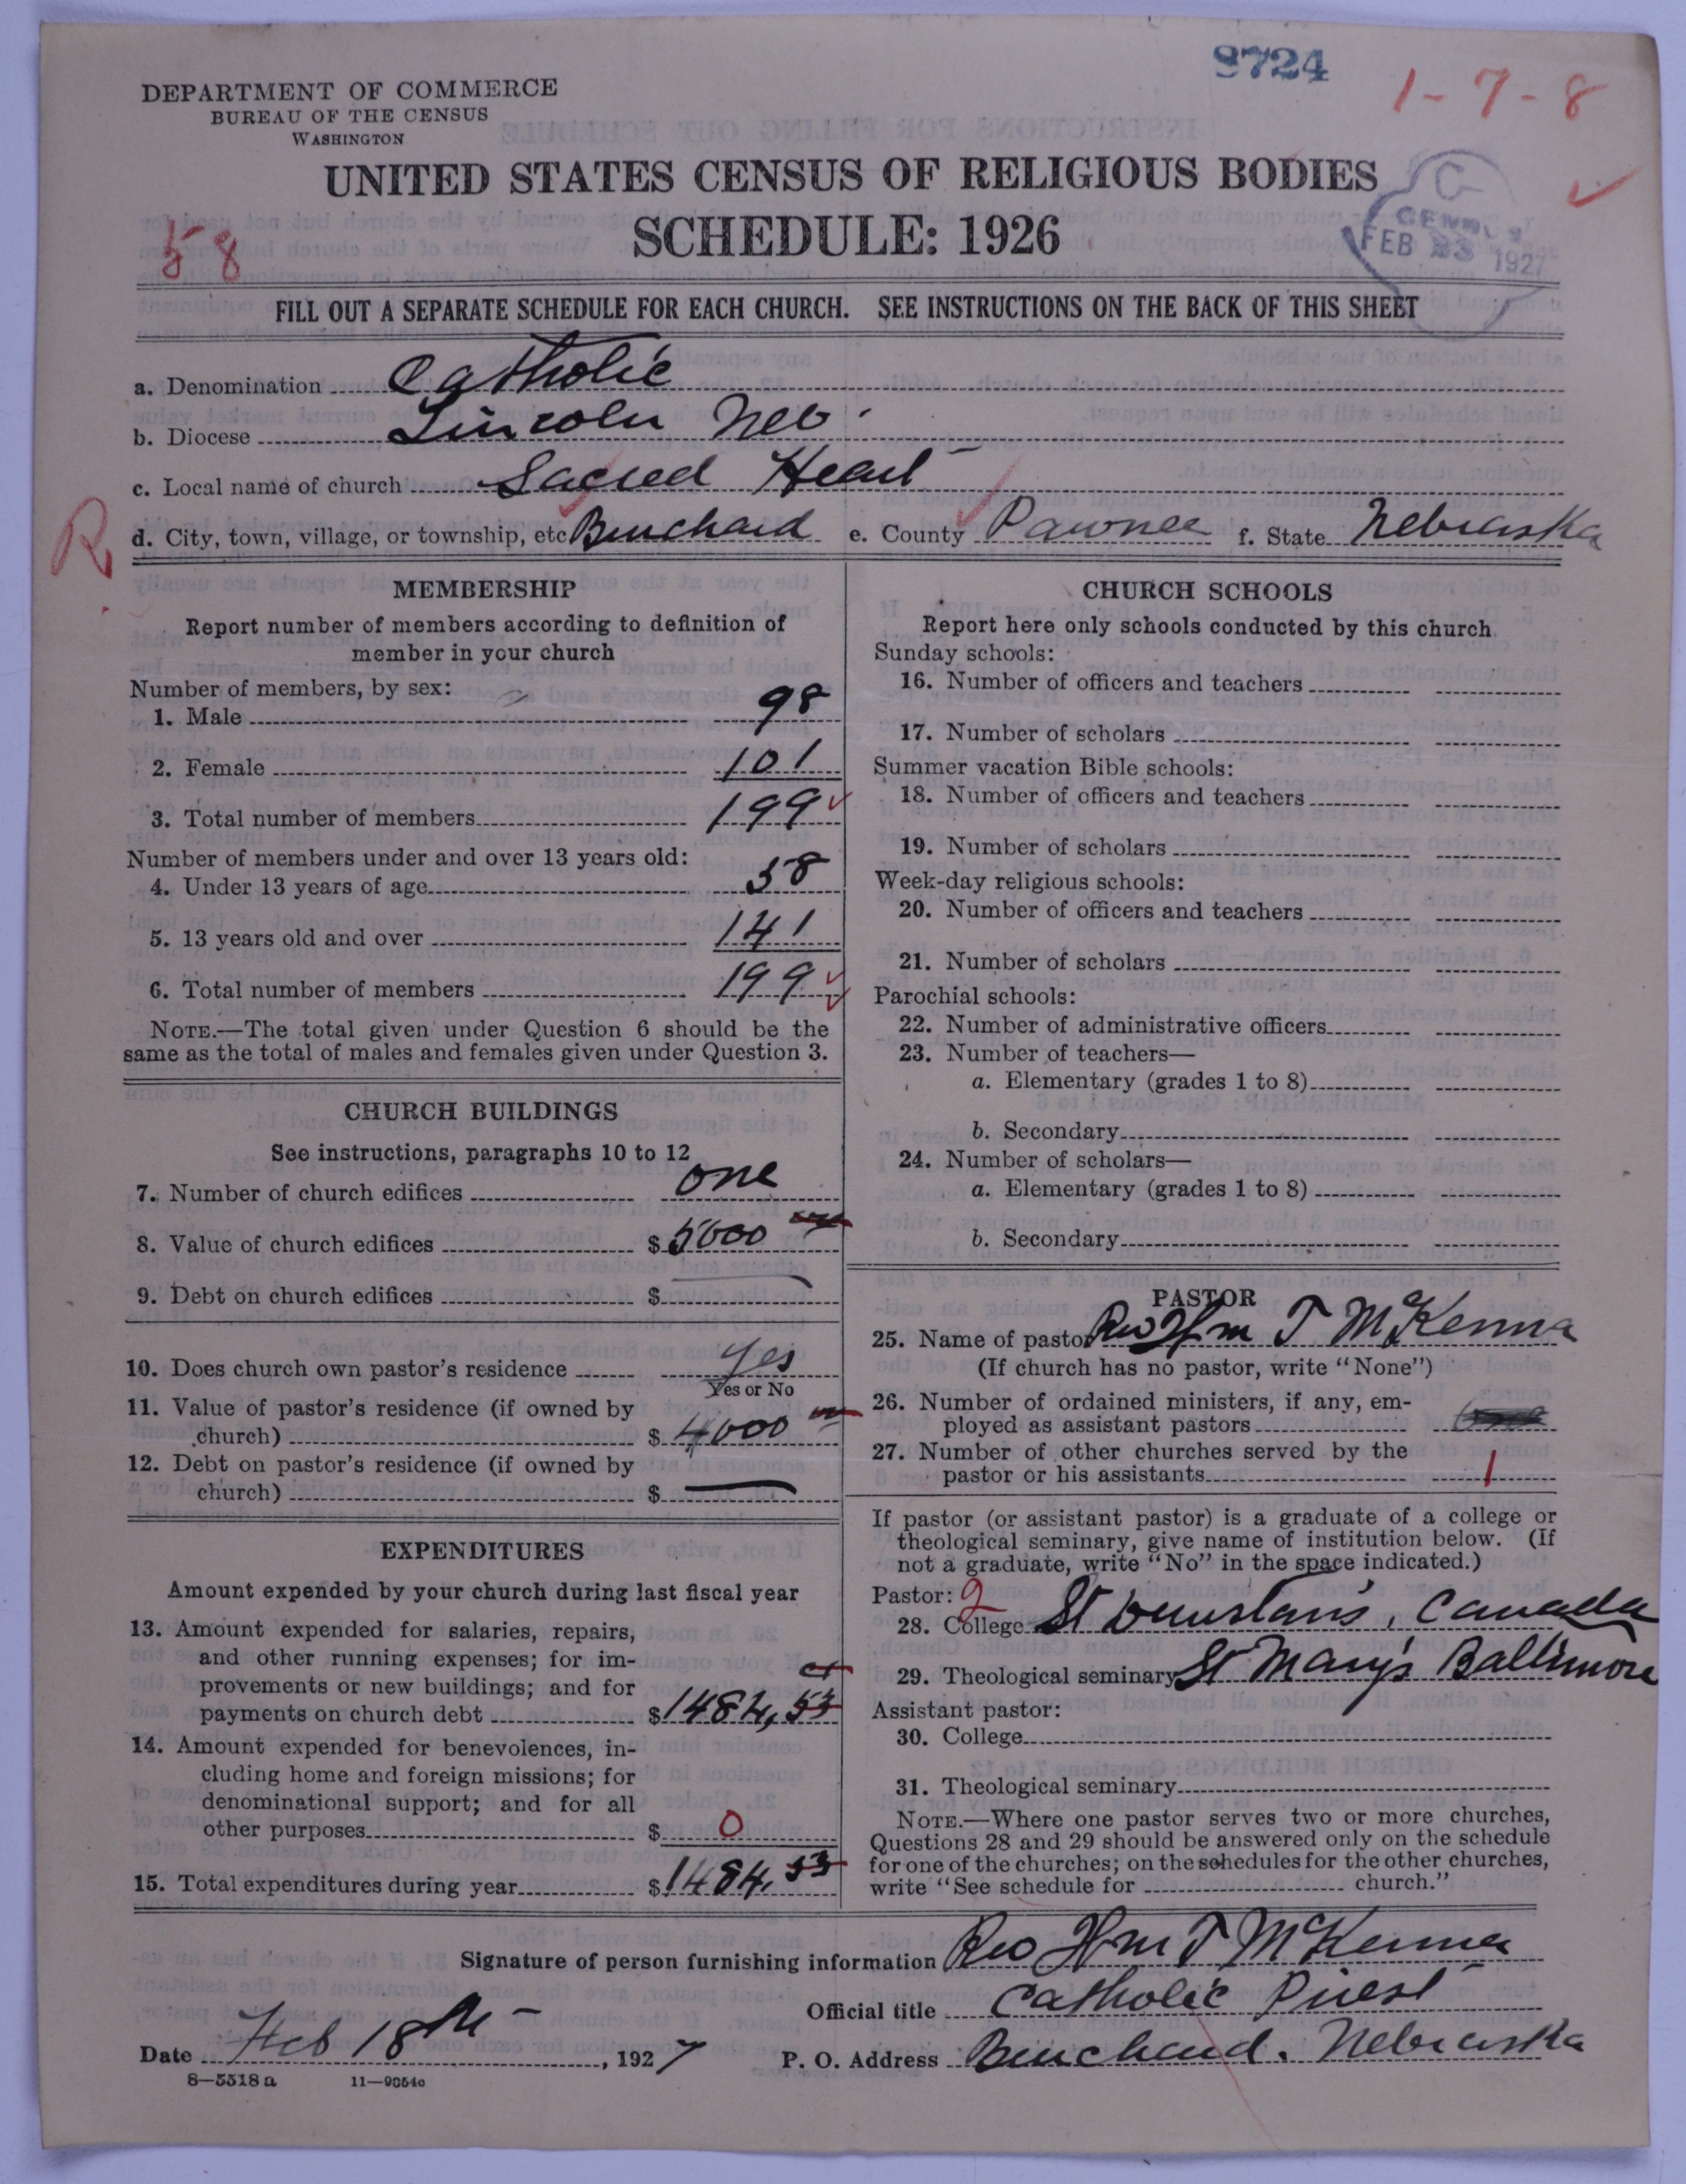 9724
1-7-8
DEPARTMENT OF COMMERCE
BUREAU OF THE CENSUS
WASHINGTON
UNITED STATES CENSUS OF RELIGIOUS BODIES
SCHEDULE: 1926
58
CENSUS
FEB 23 1927
FILL OUT A SEPARATE SCHEDULE FOR EACH CHURCH. SEE INSTRUCTIONS ON THE BACK OF THIS SHEET
a. Denomination Catholic
b. Diocese Lincoln Neb.
c. Local name of church Sacred Heart
R
d. City, town, village, or township, etc Burchard e. County Pawnee f. State Nebraska
MEMBERSHIP
Report number of members according to definition of
member in your church
Number of members, by sex:
1. Male 98
2. Female 101
3. Total number of members 199
Number of members under and over 13 years old:
4. Under 13 years of age 58
5. 13 years old and over 141
6. Total number of members 199
NOTE.—The total given under Question 6 should be the
same as the total of males and females given under Question 3.
CHURCH BUILDINGS
See instructions, paragraphs 10 to 12
7. Number of church edifices one
8. Value of church edifices $ 5000
9. Debt on church edifices $
10. Does church own pastor's residence Yes
Yes or No
11. Value of pastor's residence (if owned by
church) $ 4000
12. Debt on pastor's residence (if owned by
church) $
EXPENDITURES
Amount expended by your church during last fiscal year
13. Amount expended for salaries, repairs,
and other running expenses; for im-
provements or new buildings; and for
payments on church debt $ 1484,53
14. Amount expended for benevolences, in-
cluding home and foreign missions; for
denominational support; and for all
other purposes $ 0
15. Total expenditures during year $ 1484.53
CHURCH SCHOOLS
Report here only schools conducted by this church
Sunday schools:
16. Number of officers and teachers
17. Number of scholars
Summer vacation Bible schools:
18. Number of officers and teachers
19. Number of scholars
Week-day religious schools:
20. Number of officers and teachers
21. Number of scholars
Parochial schools:
22. Number of administrative officers
23. Number of teachers—
a. Elementary (grades 1 to 8)
b. Secondary
24. Number of scholars—
a. Elementary (grades 1 to 8)
b. Secondary
PASTOR
25. Name of pastor Rev Wm T McKenna
(If church has no pastor, write "None")
26. Number of ordained ministers, if any, em-
ployed as assistant pastors
27. Number of other churches served by the
pastor or his assistants 1
If pastor (or assistant pastor) is a graduate of a college or
theological seminary, give name of institution below. (If
not a graduate, write "No" in the space indicated.)
Pastor: 2
28. College St Dunstan's, Canada
29. Theological seminary St Mary's Baltimore
Assistant pastor:
30. College
31. Theological seminary
NOTE.—Where one pastor serves two or more churches,
Questions 28 and 29 should be answered only on the schedule
for one of the churches; on the schedules for the other churches,
write "See schedule for church."
Signature of person furnishing information Rev Wm T McKenna
Official title Catholic Priest
Date Feb 18th, 1927 P. O. Address Burchard. Nebraska
8—5518a 11—9854c